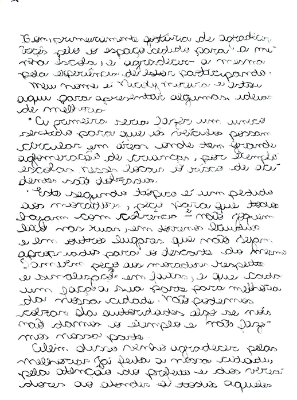 Bom, primeiramente gostaria de agradecer
vocês pelo o espaço cedido para a mi-
nha escola, e agradecer a mesma
pela experiência de estar participando.
Meu nome é e estou
aqui para apresentar algumas ideias
de melhoria.
A primeira seria fazer um
para que os veículos possam
circular em áreas onde tem grande
aglomeração de crianças, por exemplo
escolas nesse horas o risco de aci-
dentes são
Este segundo tópico é um pedido
aos moradores, peço para que todos
hajam com coerência e não joguem
lixo nas ruas, em terrenos baldios
e em outros lugares que não sejam
apropriados para o descarte do mesmo.
Também peço ao morador respeito
e e que cada
um faça a sua parte para melhoria
da nossa cidade. Não podemos
cobrar das autoridades algo se nós
não damos o exemplo e não faze-
mos nossa parte.
Além disso venho agradecer pelas
melhorias já feita a nossa cidade,
pela atenção do prefeito e dos verea-
dores ao atender a todos aqueles